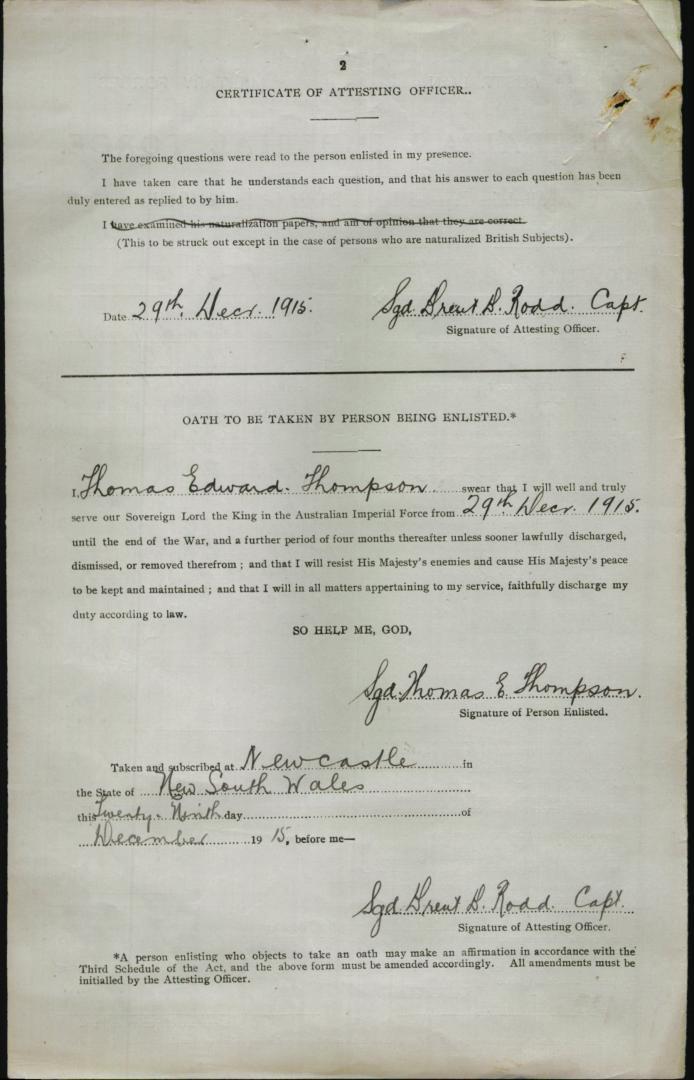 2
CERTIFICATE OF ATTESTING OFFICER..
The foregoing questions were read to the person enlisted in my presence.
I have taken care that he understands each question, and that his answer to each question has been
duly entered as replied to by him.
I have examined his naturalization papers, and am of opinion that they are correct.
(This to be struck out except in the case of persons who are naturalized British Subjects).
Date 29th Decr. 1915. Sgd. Brent D. Rodd. Capt.
Signature of Attesting Officer.
OATH TO BE TAKEN BY PERSON BEING ENLISTED.*
I, Thomas Edward Thompson swear that I will well and truly
serve our Sovereign Lord the King in the Australian Imperial Force from 29th Decr. 1915.
until the end of the War, and a further period of four months thereafter unless sooner lawfully discharged,
dismissed, or removed therefrom ; and that I will resist His Majesty's enemies and cause His Majesty's peace
to be kept and maintained ; and that I will in all matters appertaining to my service, faithfully discharge my
duty according to law.
SO HELP ME, GOD,
Sgd. Thomas E Thompson.
Signature of Person Enlisted.
Taken and subscribed at Newcastle in
the State of New South Wales
this Twenty-Ninth day of
December 1915, before me—
Sgd. Brent D. Rodd. Capt.
Signature of Attesting Officer.
*A person enlisting who objects to take an oath may make an affirmation in accordance with the
Third Schedule of the Act, and the above form must be amended accordingly. All amendments must be
initialled by the Attesting Officer.